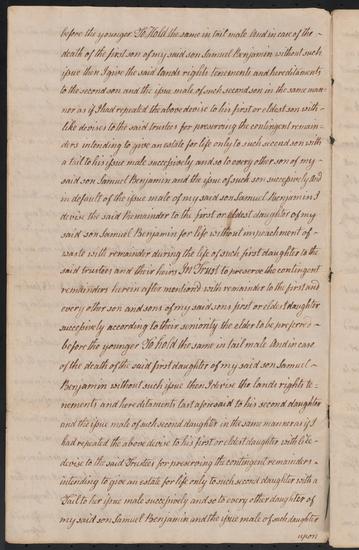 before the younger To Hold the same in tail male And in case of the
death of the first son of my said son Samuel Benjamin without such
issue then I give the said lands rights tenements and hereditaments
to the second son and the issue male of such second son in the same man-
ner as if I had repeated the above devise to his first or eldest son with
like devises to the said trustees for preserving the contingent remain-
ders intending to give an estate for life only to such second son with
a tail to his issue male successively and so to every other son of my
said son Samuel Benjamin and the issue of such son successively And
in default of the issue male of my said son Samuel Benjamin I
devise the said Remainder to the first or eldest daughter of my
said son Samuel Benjamin for life without impeachment of
waste with remainder during the life of such first daughter to the
said trustees and their heirs In Trust to preserve the contingent
remainders herein after mentioned with remainder to the first and
every other son and sons of my said sons first or eldest daughter
successively according to their seniority the elder to be preferred
before the younger To hold the same in tail male And in case
of the death of the said first daughter of my said son Samuel
Benjamin without such issue then I devise the lands rights te-
nements and hereditaments last aforesaid to his second daughter
and the issue male of such second daughter in the same manner as if I
had repeated the above devise to his first or eldest daughter with like
devise to the said Trustees for preserving the contingent remainders
intending to give an estate for life only to such second daughter with a
Tail to her issue male successively and so to every other daughter of
my said son Samuel Benjamin and the issue male of such daughter
upon